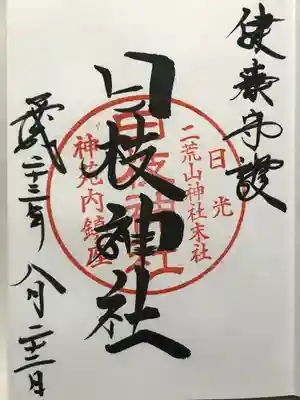 健康守護
日光
二荒山神社末社
日枝神社
日枝神社
神苑内鎮座
平成二十三年 八月